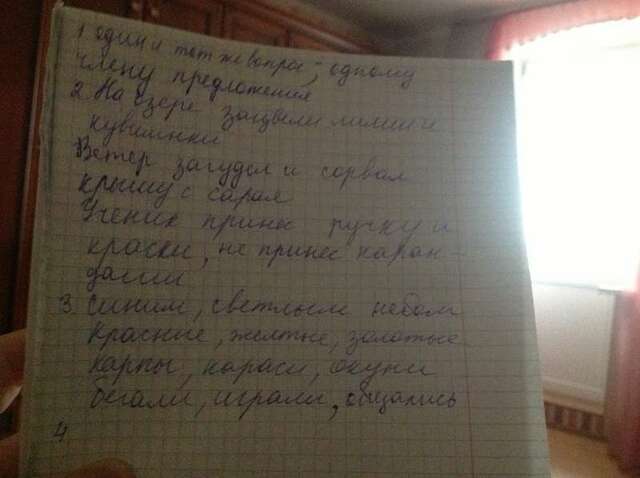 1 один и тот же вопрос; одному
члену предложения
2. На озере зацвели лилии и
кувшинки
Ветер загудел и сорвал
крышу с сарая
Ученик принес ручку и
краски, не принес каран-
даши
3 Синим, светлым небом
Красные, желтые, золотые
Карпы, караси, окуни
бегали, играли, общались
4